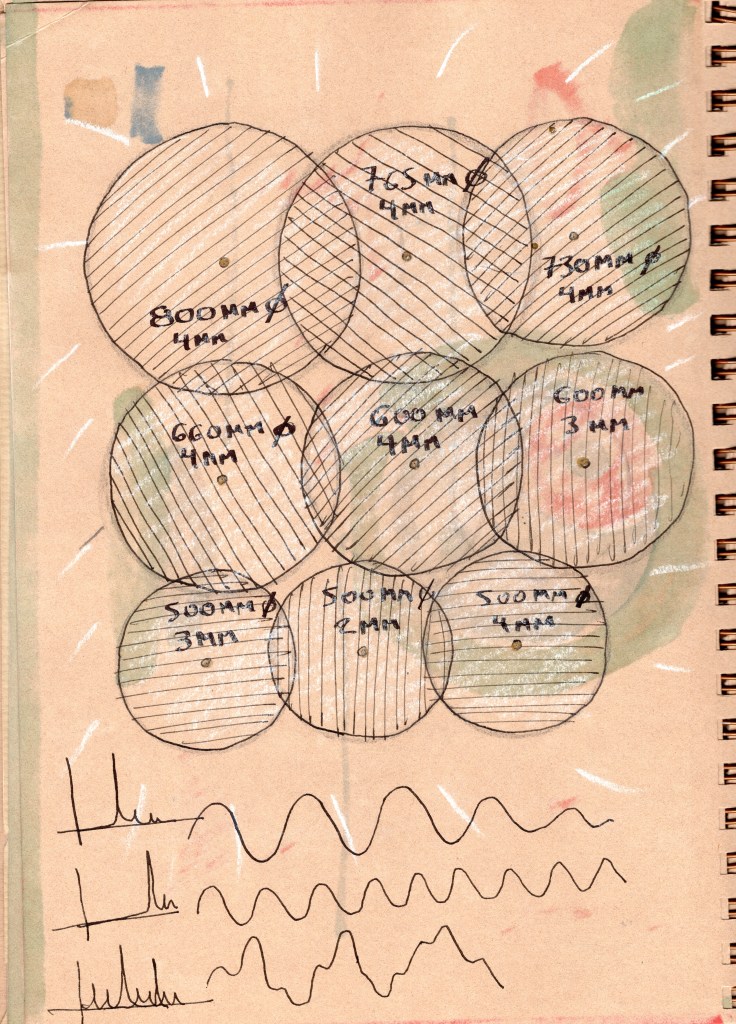 765MM Ø
4MM
730MM Ø
4MM
800MM Ø
4MM
600MM
3MM
600MM
4MM
660MM Ø
4MM
500MM Ø
3MM
500MM Ø
2MM
500MM Ø
4MM